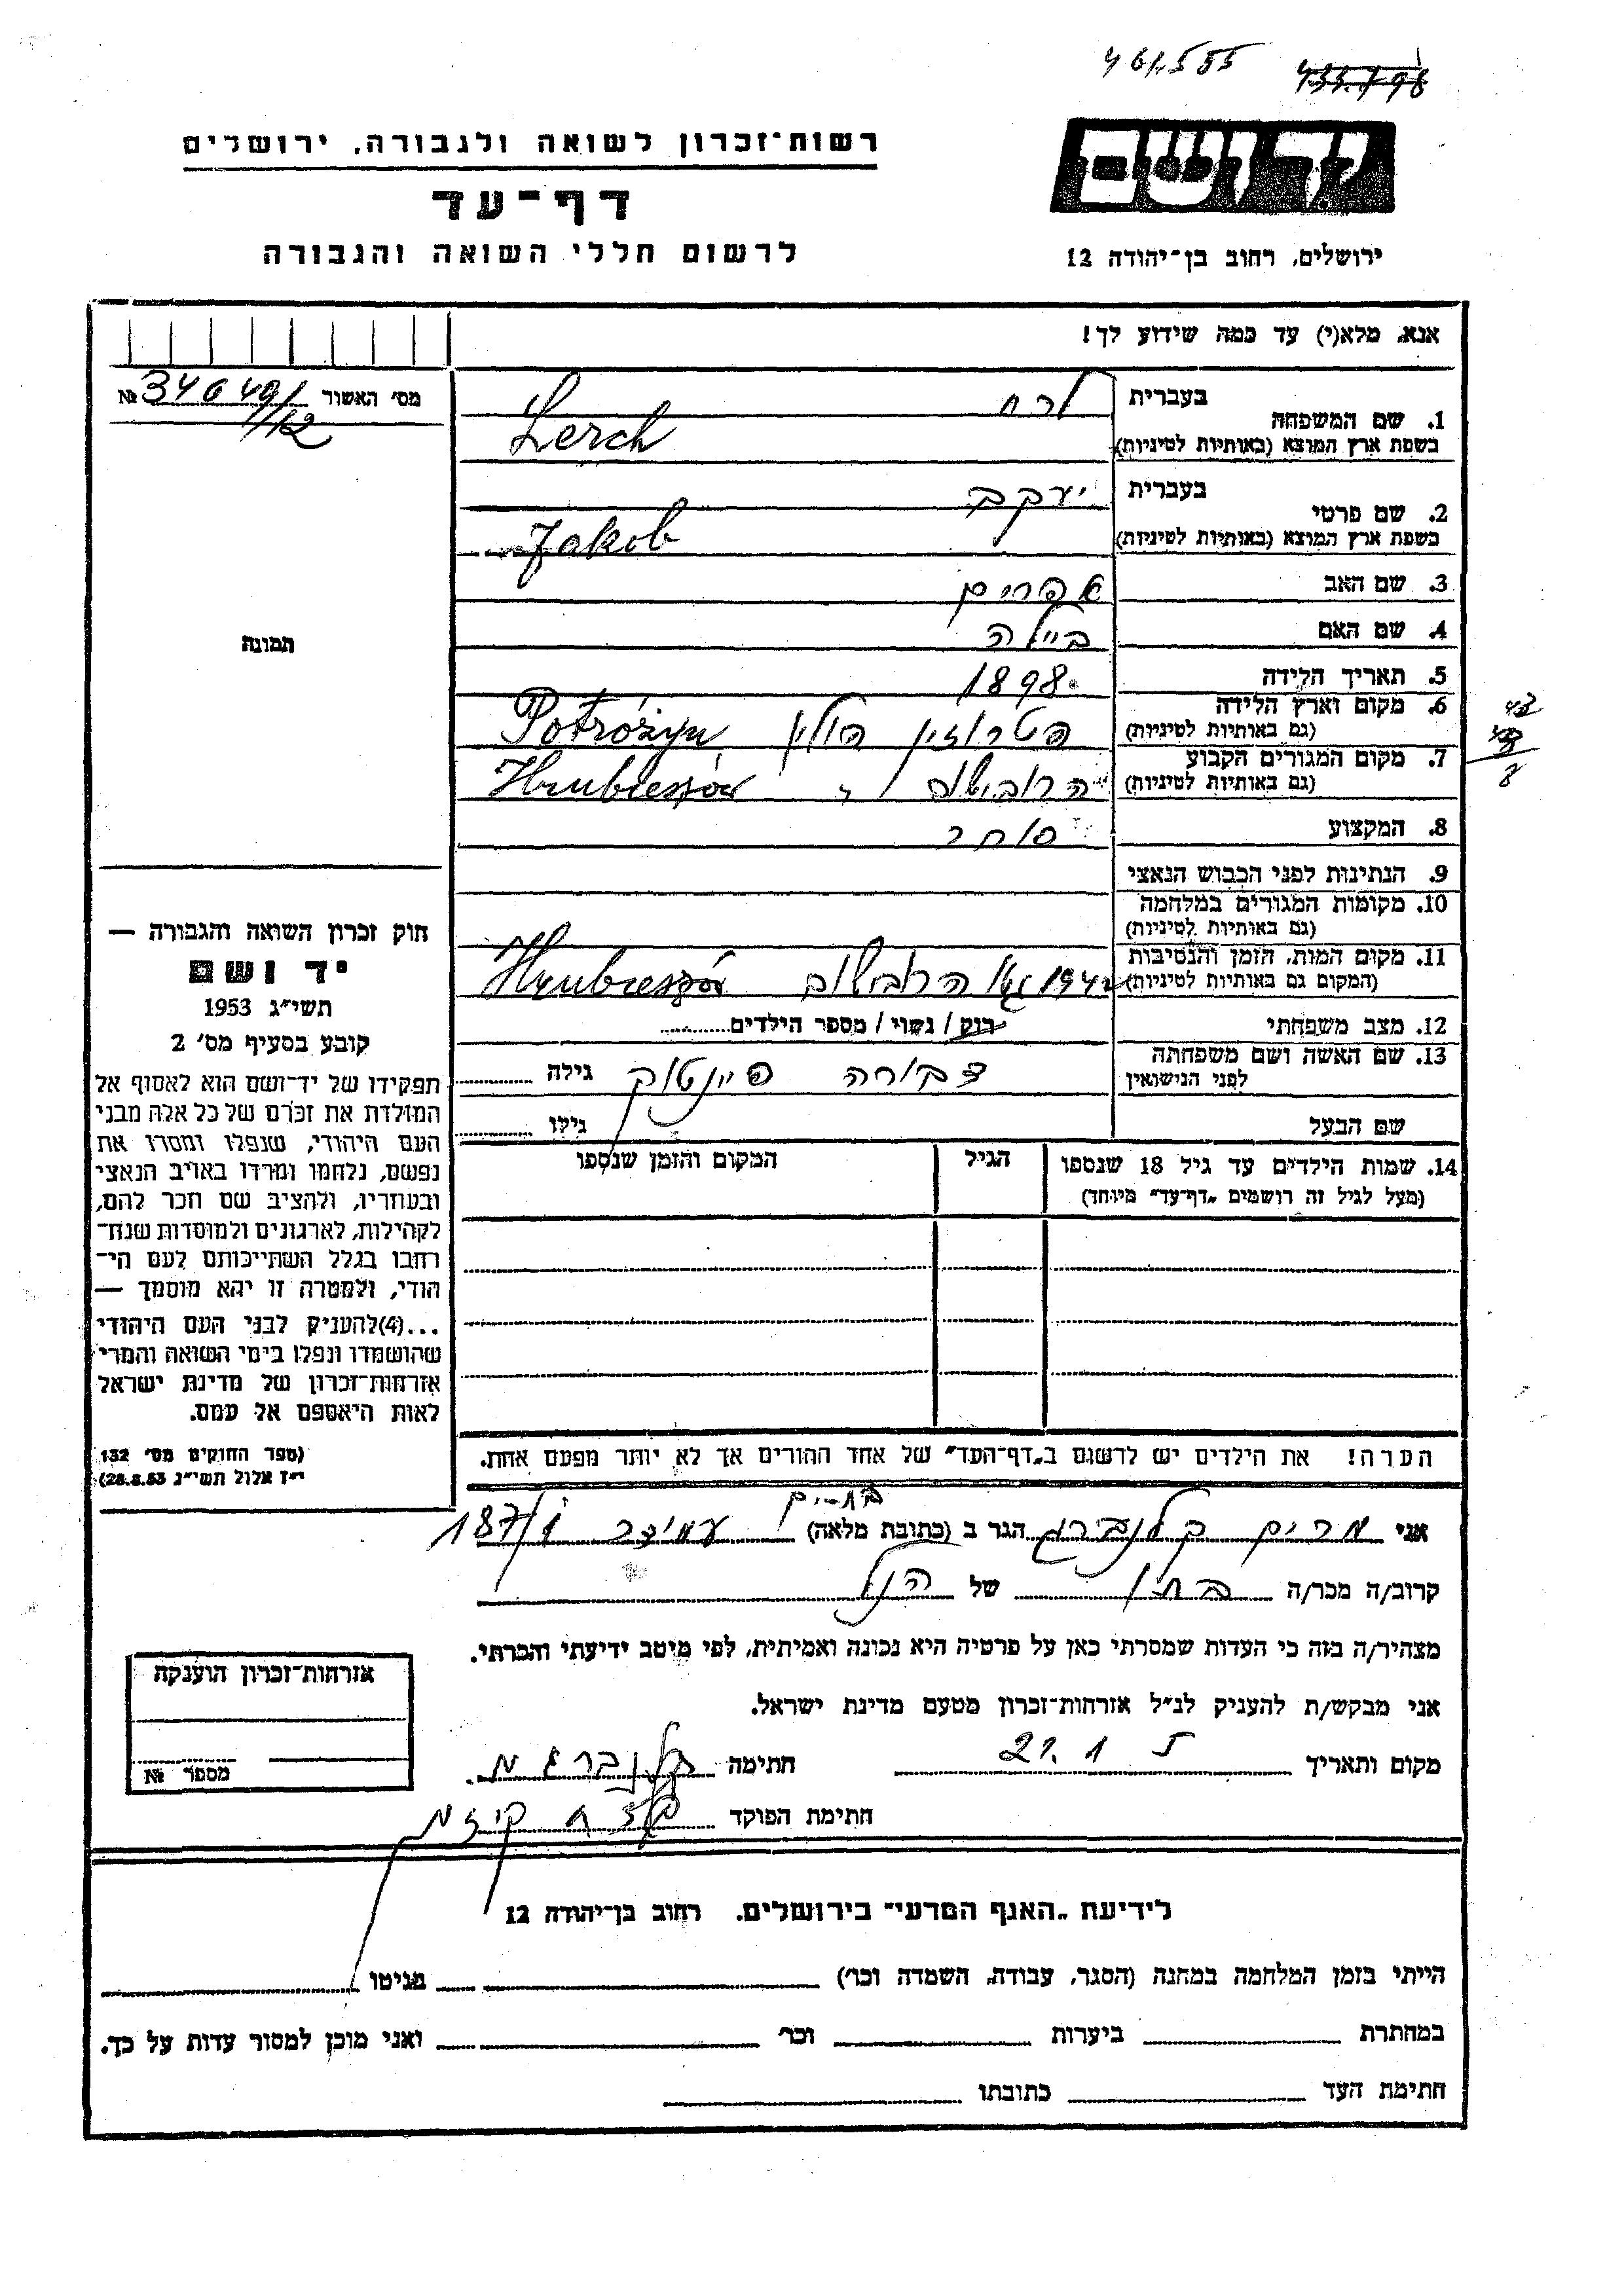 461.555
רשות־זכרון לשואה ולגבורה, ירושלים
יד ושם
דף־עד
לרשום חללי השואה והגבורה
ירושלים, רחוב בן־יהודה 12
אנא, מלא(י) עד כמה שידוע לך!
מס׳ האשור № 346491/12
1. שם המשפחה
בעברית לרח
בשפת ארץ המוצא (באותיות לטיניות) Lerch
2. שם פרטי
בעברית יעקב
בשפת ארץ המוצא (באותיות לטיניות) Jakob
3. שם האב אפרים
4. שם האם ביילה
5. תאריך הלידה 1898
6. מקום וארץ הלידה
(גם באותיות לטיניות) פוטרוזין פולין Potróżyn
7. מקום המגורים הקבוע
(גם באותיות לטיניות) הרובישוב " Hrubieszów
8. המקצוע סוחר
9. הנתינות לפני הכבוש הנאצי
10. מקומות המגורים במלחמה
(גם באותיות לטיניות)
11. מקום המות, הזמן והנסיבות
(המקום גם באותיות לטיניות) 1942 הרובישוב Hrubieszów
12. מצב משפחתי רווק / נשוי / מספר הילדים
13. שם האשה ושם משפחתה
לפני הנישואין דבורה פיינטוך גילה
שם הבעל גילו
14. שמות הילדים עד גיל 18 שנספו
(מעל לגיל זה רושמים „דף־עד״ מיוחד)
הגיל
המקום והזמן שנספו
תמונה
חוק זכרון השואה והגבורה —
יד ושם
תשי״ג 1953
קובע בסעיף מס׳ 2
תפקידו של יד־ושם הוא לאסוף אל
המולדת את זכרם של כל אלה מבני
העם היהודי, שנפלו ומסרו את
נפשם, נלחמו ומרדו באויב הנאצי
ובעוזריו, ולהציב שם וזכר להם,
לקהילות, לארגונים ולמוסדות שנח־
רבו בגלל השתייכותם לעם הי־
הודי, ולמטרה זו יהא מוסמך —
...(4) להעניק לבני העם היהודי
שהושמדו ונפלו בימי השואה והמרי
אזרחות־זכרון של מדינת ישראל
לאות היאספם אל עמם.
(ספר החוקים מס׳ 132
י״ז אלול תשי״ג 28.8.53)
הערה! את הילדים יש לרשום ב„דף־העד״ של אחד ההורים אך לא יותר מפעם אחת.
בת-ים
אני מרים קלנברג הגר ב (כתובת מלאה) עמידר 187/1
קרוב/ה מכר/ה בת דוד של הנ״ל
מצהיר/ה בזה כי העדות שמסרתי כאן על פרטיה היא נכונה ואמיתית, לפי מיטב ידיעתי והכרתי.
אני מבקש/ת להעניק לנ״ל אזרחות־זכרון מטעם מדינת ישראל.
מקום ותאריך 21.1 חתימה קלנברג מ.
חתימת הפוקד
אזרחות־זכרון הוענקה
מספר №
לידיעת „האגף המדעי״ בירושלים. רחוב בן־יהודה 12
הייתי בזמן המלחמה במחנה (הסגר, עבודה, השמדה וכו׳) בגיטו
במחתרת ביערות וכו׳ ואני מוכן למסור עדות על כך.
חתימת העד כתובתו